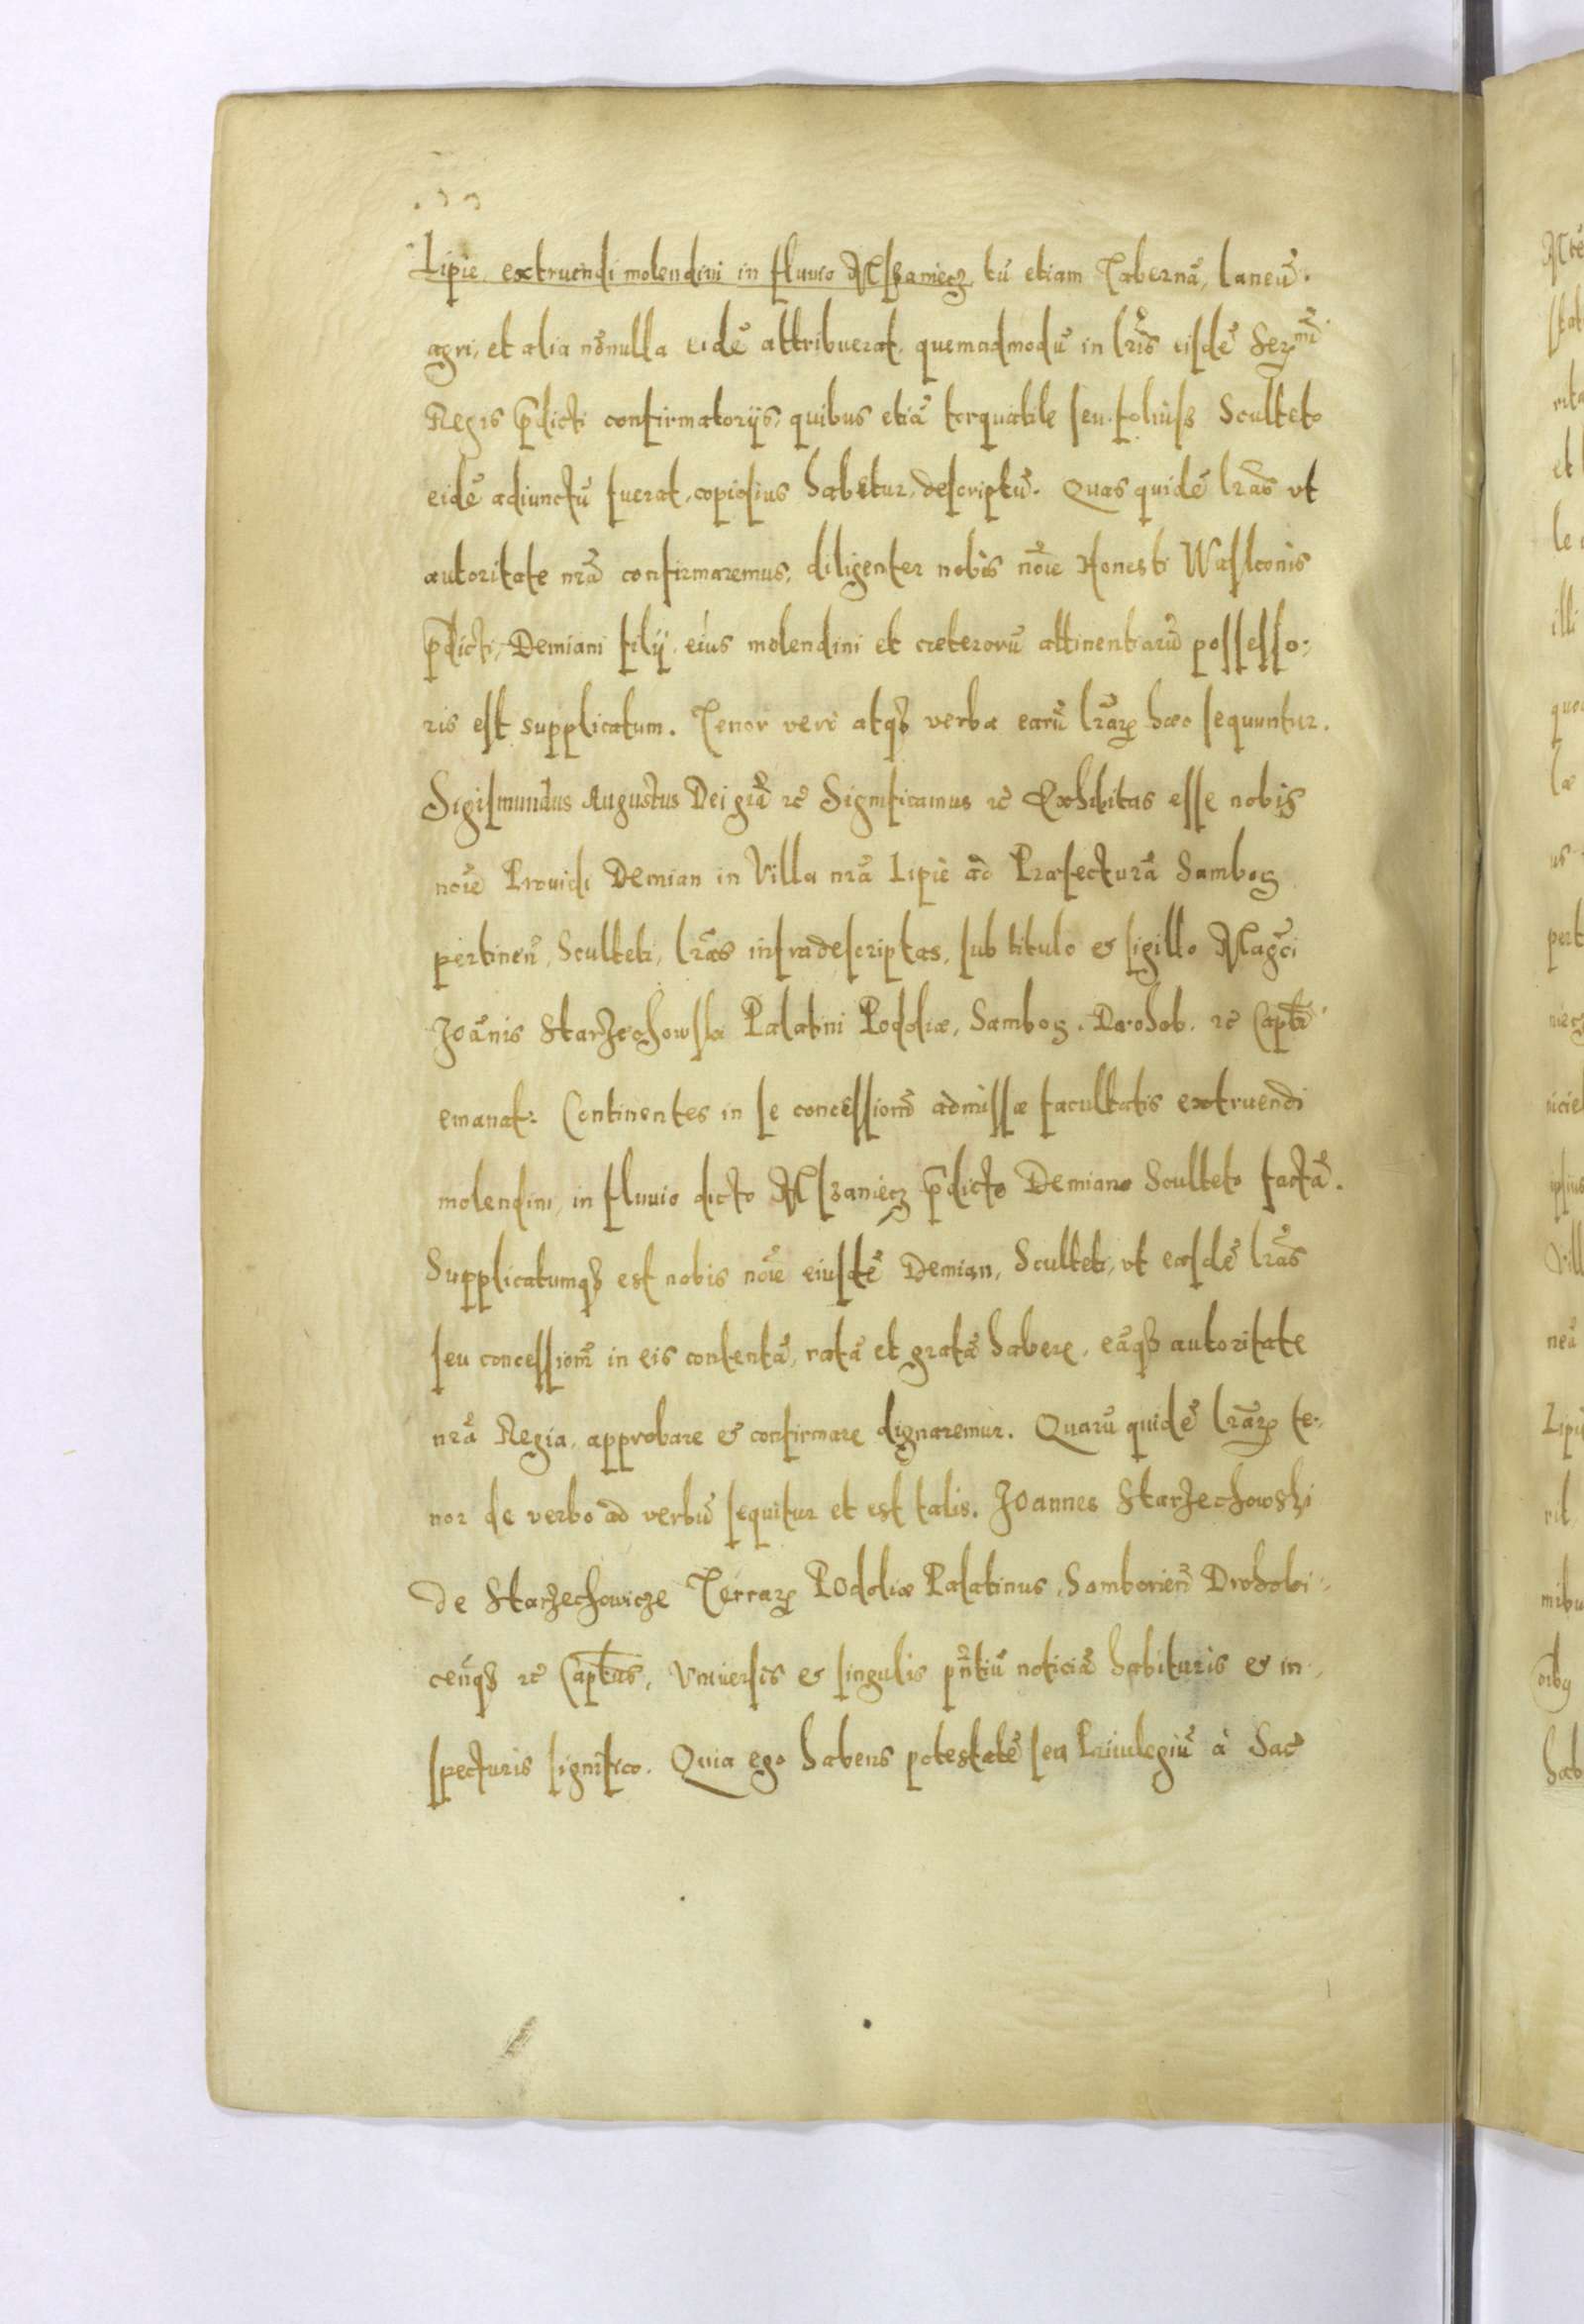 Lipie extruendi molendini in fluuio Mszaniecz, tū etiam Tabernā, laneū
agri, et alia nōnulla eidē attribuerat, quemadmodū in lr̃is eisdē Serᵐⁱ
Regis p̄dicti confirmatorijs, quibus etiā torquabile seu folusz Sculteto
eidē adiunctū fuerat, copiosius habetur descriptū. Quas quidē lr̃as vt
autoritate nr̃a confirmaremus, diligenter nobis noīe Honesti Waslconis
p̄dicti, Demiani filij, eius molendini et cæterorū attinentiarū possesso⸗
ris est supplicatum. Tenor vero atqȝ verba earū lr̃arꝫ hæc sequuntur.
Sigismundus Augustus Dei gr̃a ꝛc̃ Significamus ꝛc̃ Exhibitas esse nobis
noīe Prouidi Demian in Villa nr̃a Lipie ad Præfecturā Sambor
pertineñ, Sculteti, lr̃as infradescriptas, sub titulo & sigillo Magc̃i
Joānis Starzechowski Palatini Podoliæ, Sambor. Drohob. ꝛc̃ Captī
emanat: Continentes in se concessionē admissæ facultatis extruendi
molendini, in fluuio dicto Mszaniecz p̄dicto Demiano Sculteto factā.
Supplicatumqȝ est nobis noīe eiusdē Demian, Sculteti, vt easdē lr̃as
seu concessionē in eis contentā, ratā et gratā habere, eāqȝ autoritate
nr̃a Regia, approbare & confirmare dignaremur. Quarū quidē lr̃arꝫ te⸗
nor de verbo ad verbū sequitur et est talis. Joannes Starzechowski
de Starzechowicze Terrarꝫ Podoliæ Palatinus, Samborieñ Drohobi⸗
ceñqȝ ꝛc̃ Captūs, Vniuersis & singulis pñtiū noticiā habituris & in⸗
specturis significo. Quia ego habens potestatē seu Priuilegiū à Sac̃